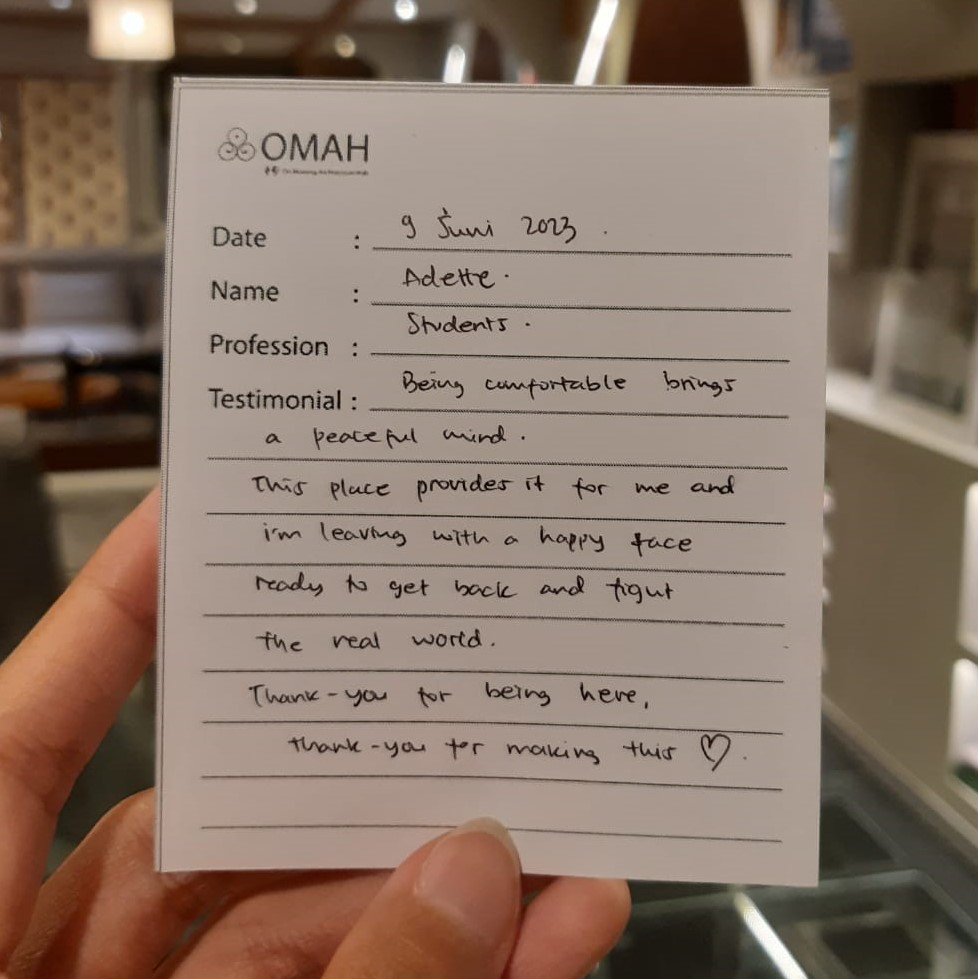 OMAH
Date : 9 Juni 2023 .
Name : Adette .
Profession : Students .
Testimonial : Being comfortable brings
a peaceful mind .
This place provides it for me and
i'm leaving with a happy face
ready to get back and fight
the real world .
Thank-you for being here,
thank-you for making this ♡ .